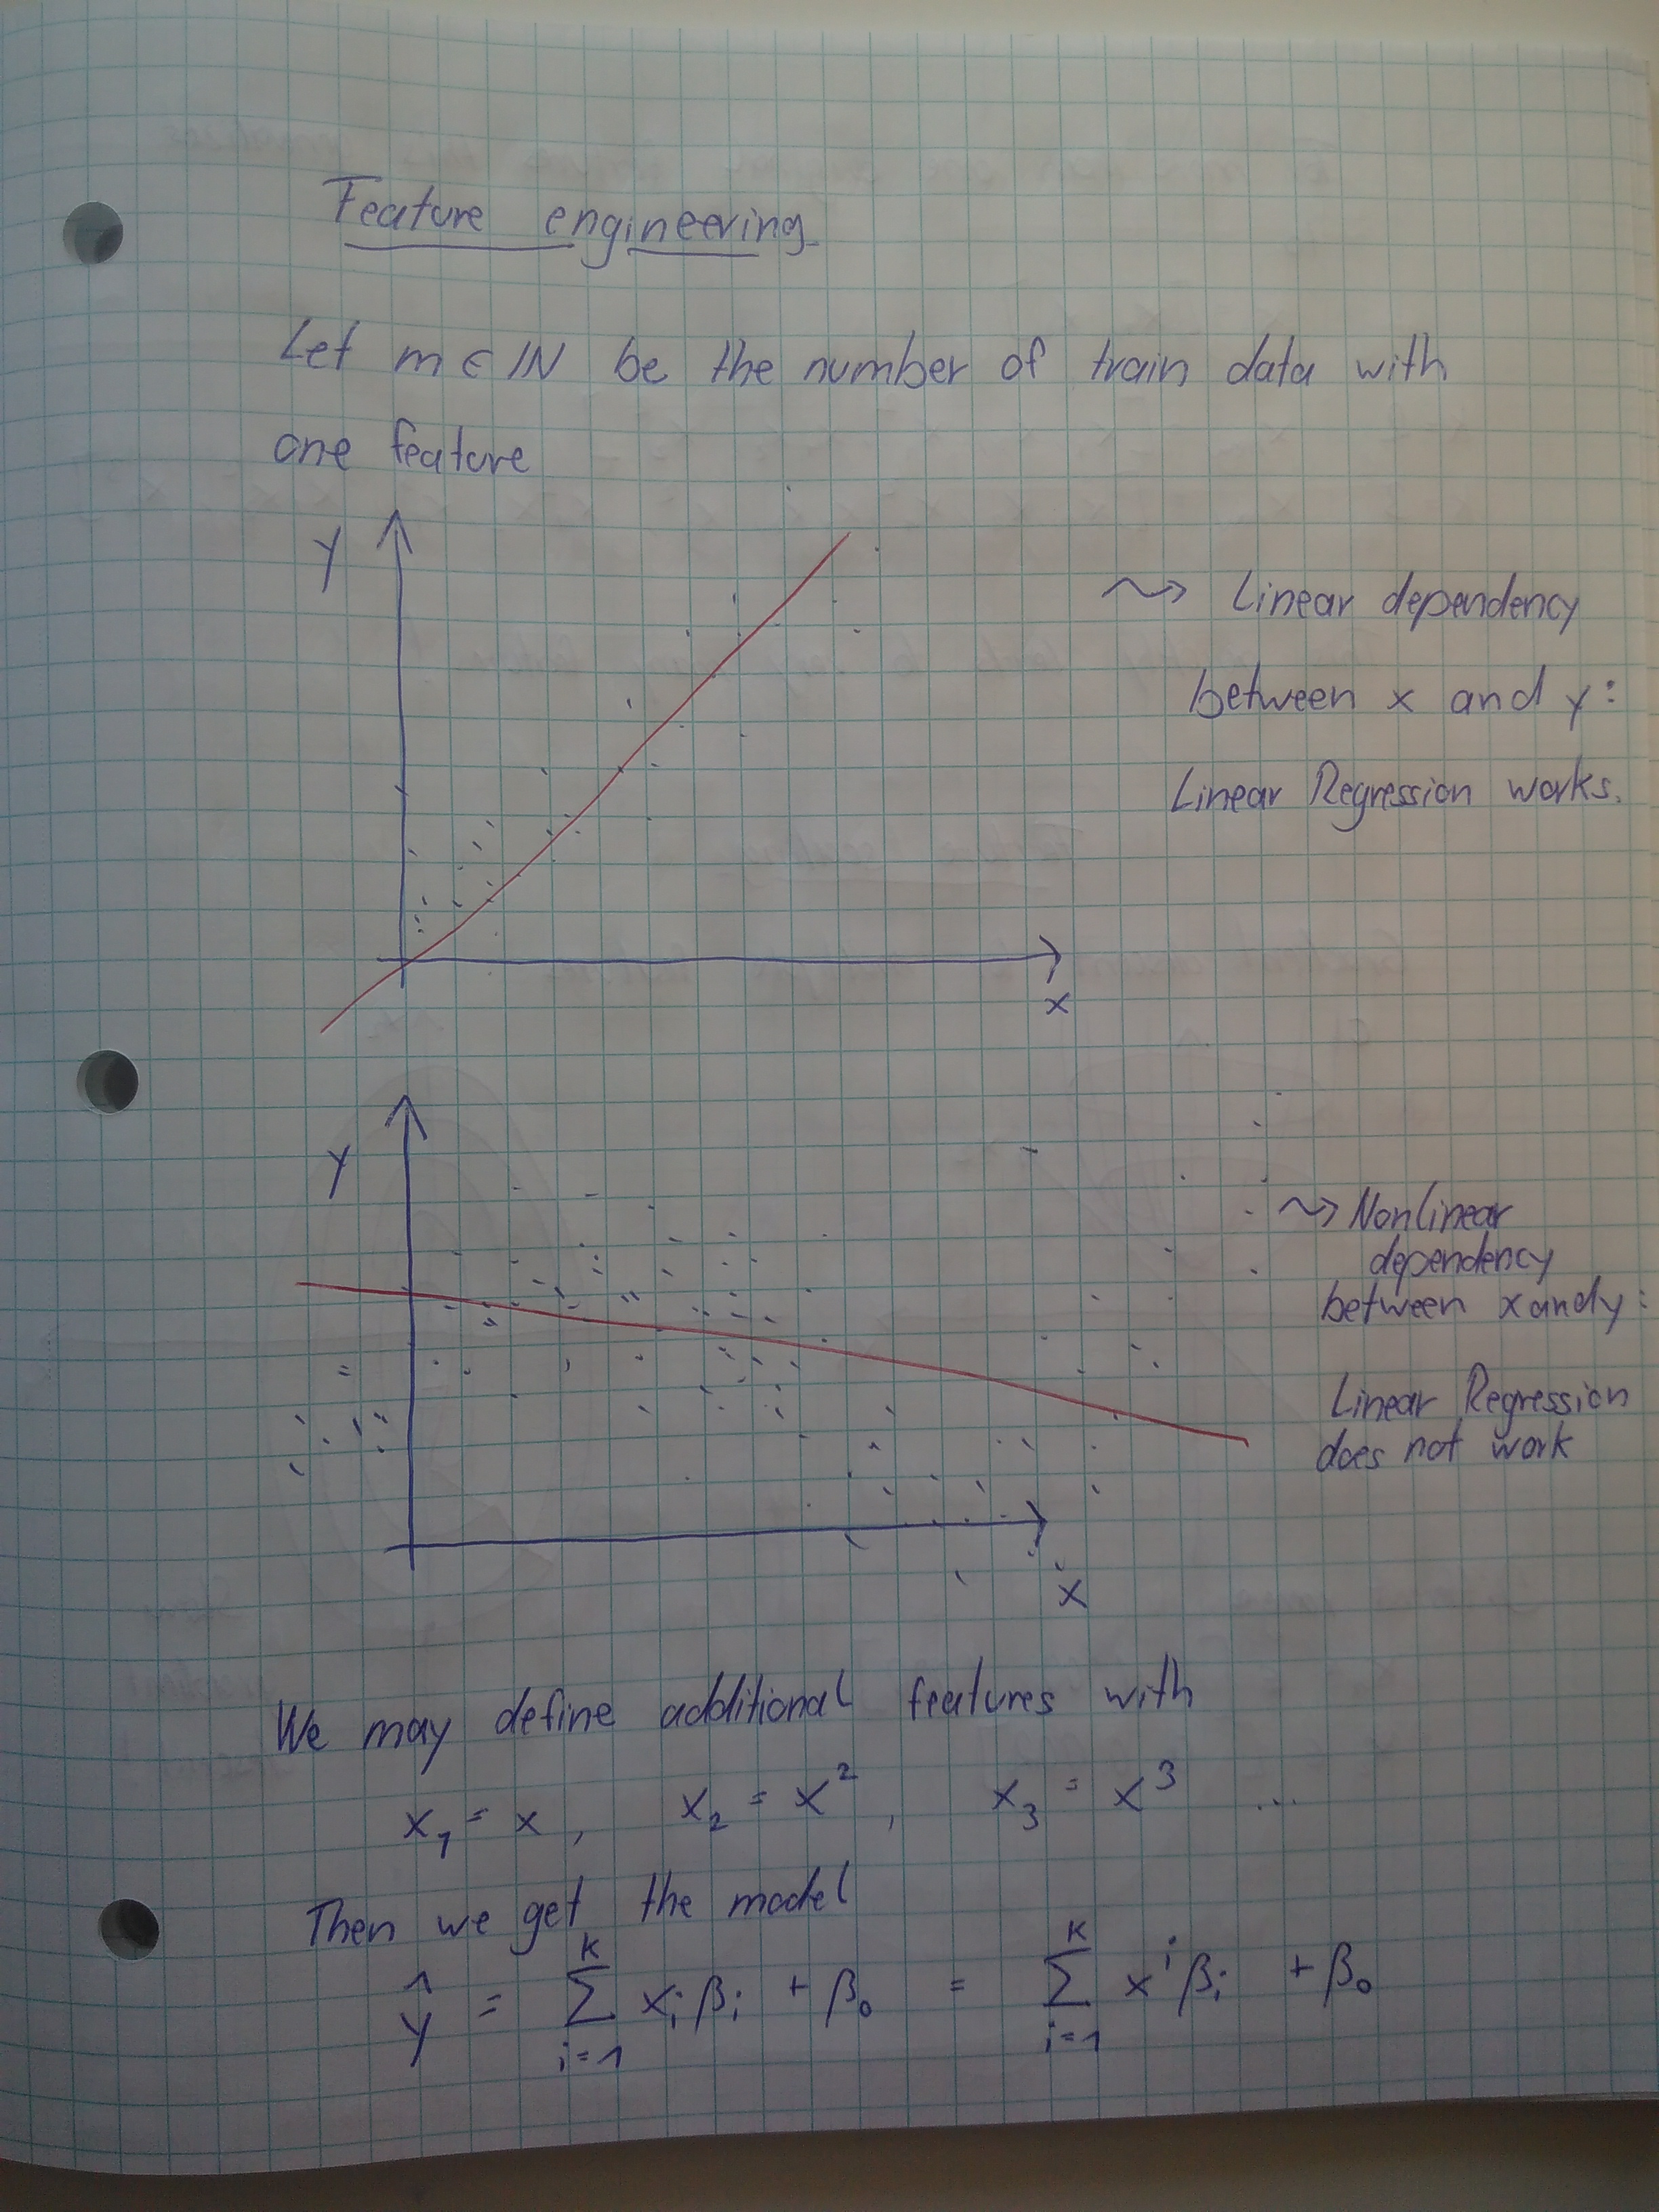 Feature engineering
Let m ∈ ℕ be the number of train data with
one feature
y
↝ Linear dependency
between x and y:
Linear Regression works.
x
y
↝ Nonlinear
dependency
between x and y:
Linear Regression
does not work
x
We may define additional features with
x₁ = x, x₂ = x², x₃ = x³ ...
Then we get the model
ŷ = ∑_{i=1}^{K} xᵢ βᵢ + β₀ = ∑_{i=1}^{K} xⁱ βᵢ + β₀